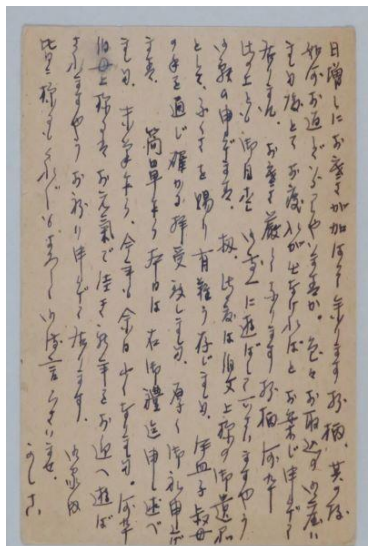 日増しにお寒さが加はって参ります折柄、其の後
如何お過しでいらっしゃいますか。色々お取込の御座に
主司様とてお疲れが出なければとお案じ申上げて
居ります。お寒さ厳しくなります折柄何卒
此の上とも御自愛御専一に遊ばして下さいますやう
御願ひ申上げます。扨、此度は伯父上様の御遺品
として、子くさを賜り有難う存じます。伊皿子叔母
の手を通じ確かに拝受致しました。厚く御礼申上げ
ます。簡単ながら本日は右御禮迄申し述べ
ます。末筆ながら、今年も余日少くなりました。何卒
伯母上様にはお元気で佳き新年をお迎へ遊ば
されますやうお祈り申上げて居ります。御家内
皆々様にもくれぐれもよろしく御伝言下さいませ。
かしこ